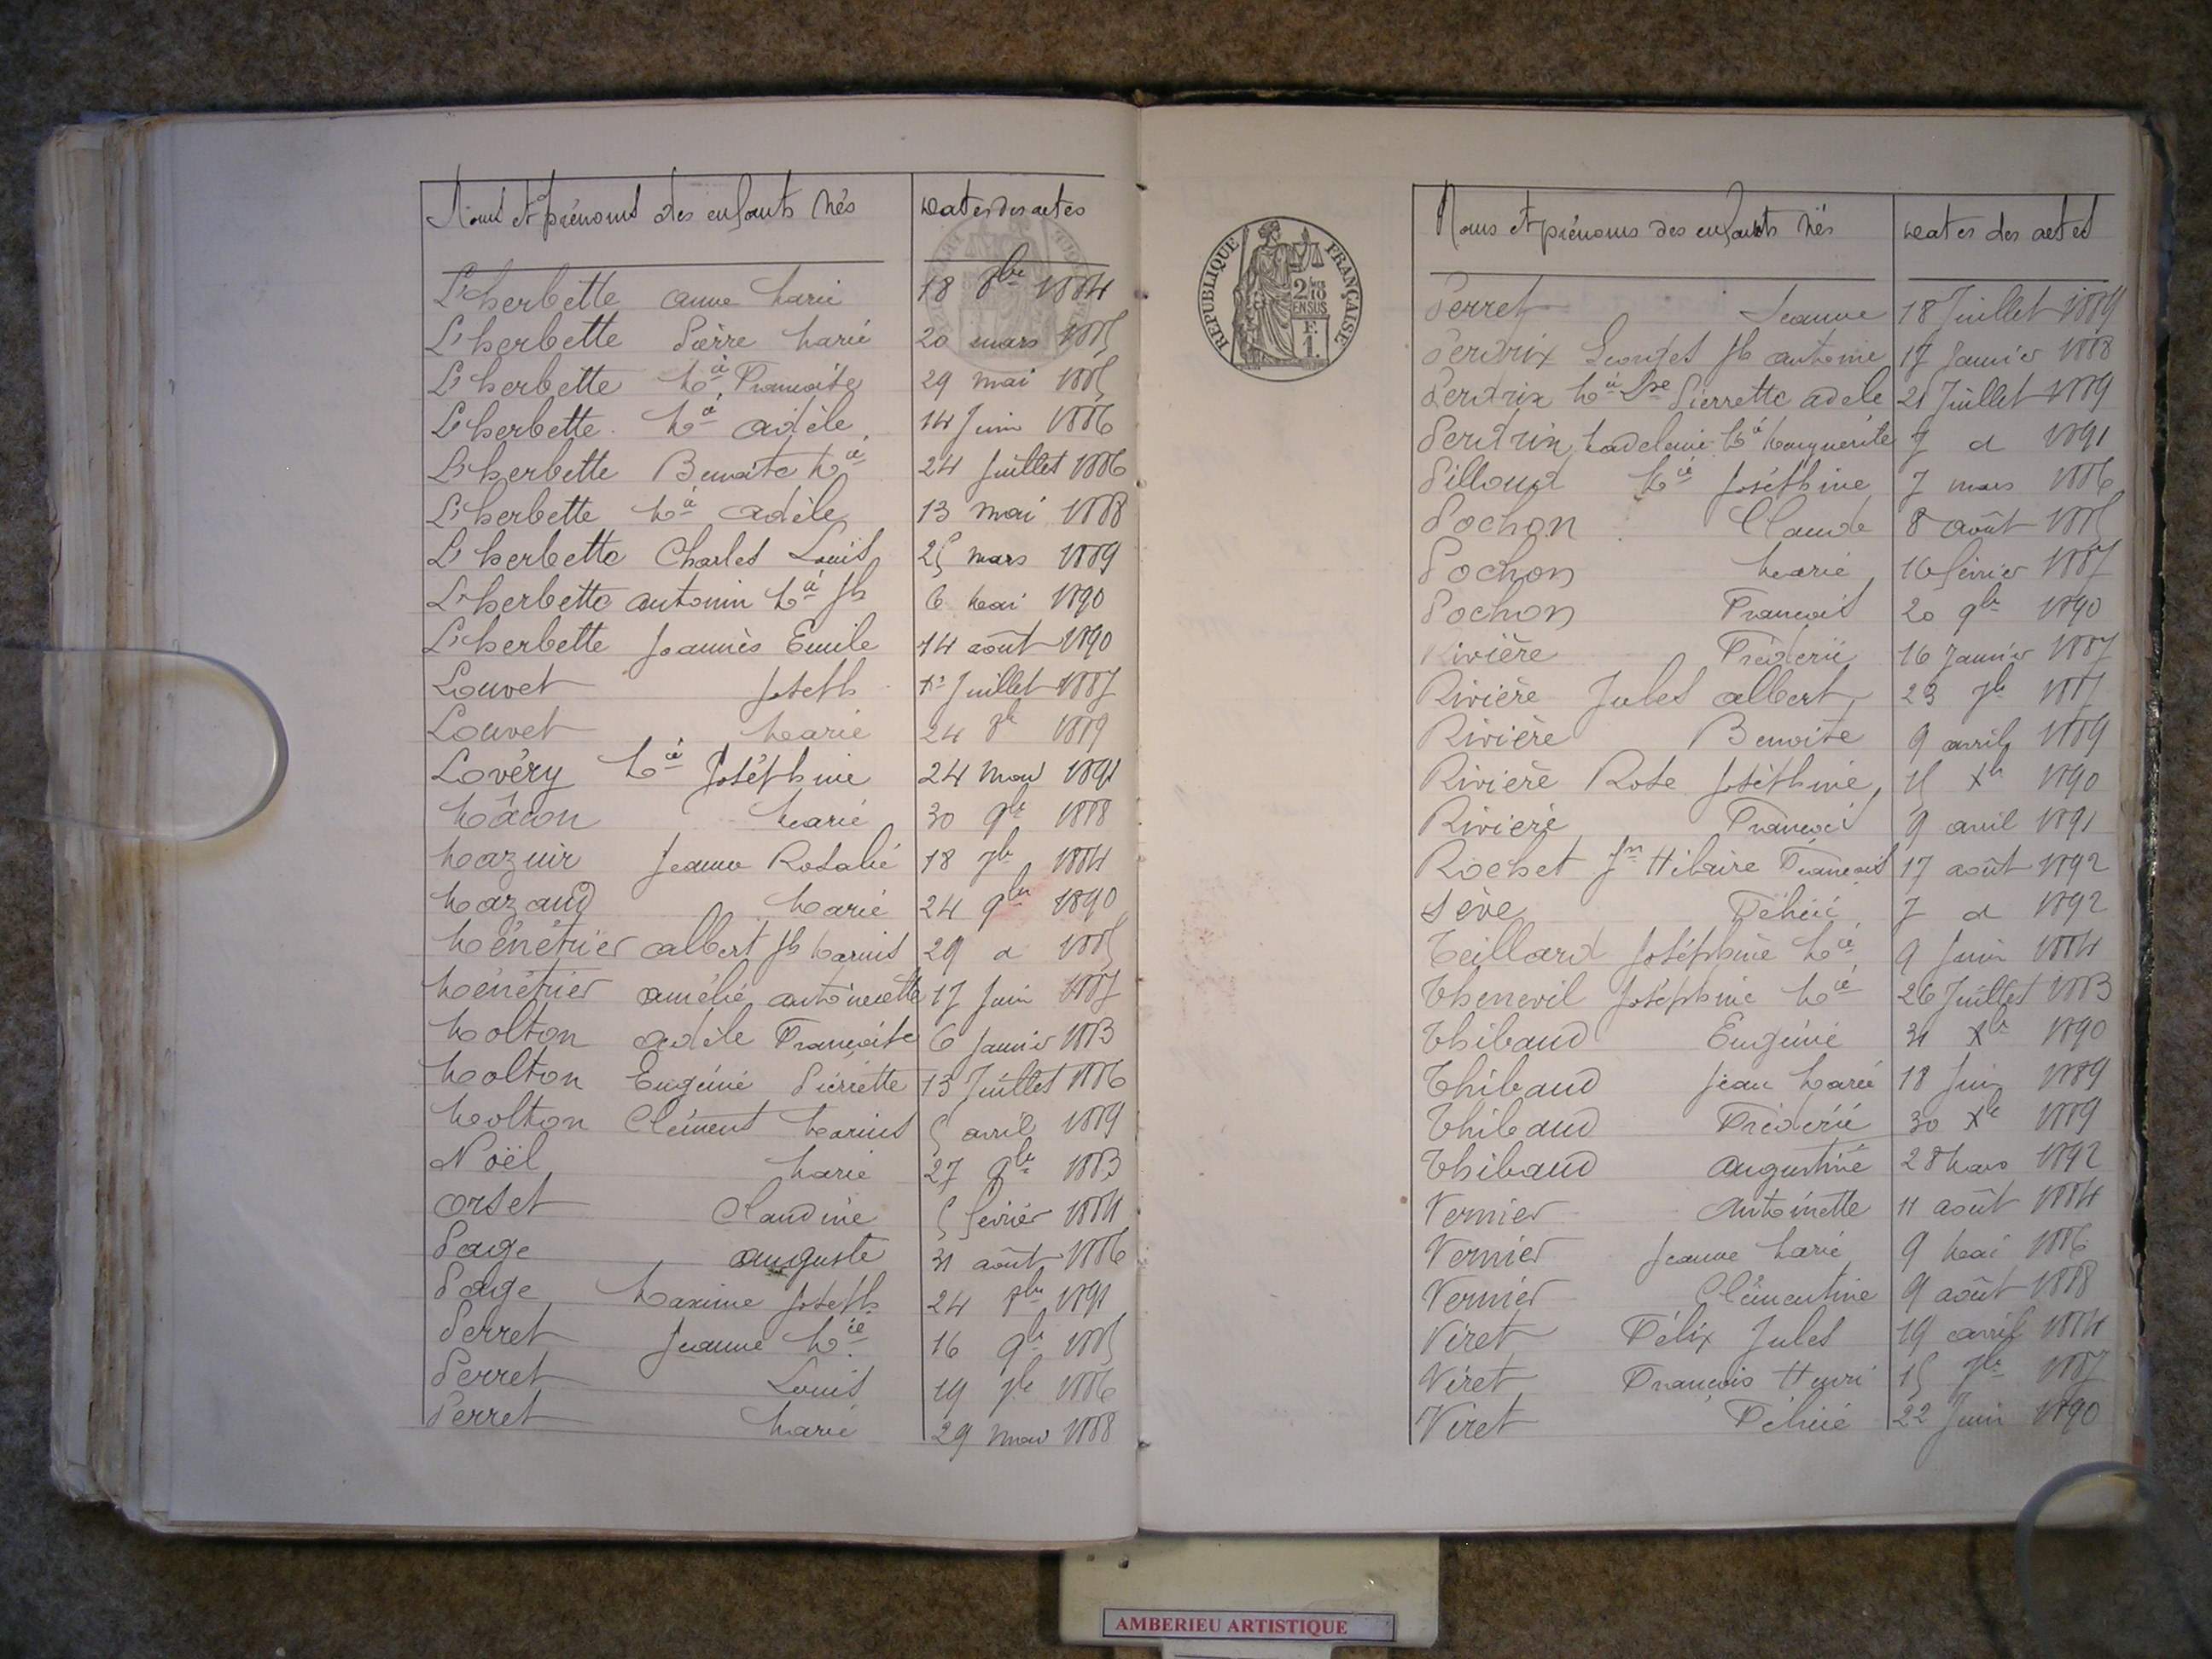 Noms et prénoms des enfants nés Dates des actes
L'herbette anne Marie 18 8bre 1884
L'herbette Pierre Marie 20 mars 1885
L'herbette Mie Françoise 29 mai 1885
L'herbette Mie adèle 14 Juin 1886
L'herbette Benoite Mie 24 Juillet 1886
L'herbette Mie adèle 13 mai 1888
L'herbette Charles Louis 25 mars 1889
L'herbette antonin Mie Jh 6 Mai 1890
L'herbette Joannès Emile 14 août 1890
Louvet Joseph 1er Juillet 1887
Louvet Marie 24 8bre 1889
Lovéry Mie Joséphine 24 mars 1891
Mâcon Marie 30 9bre 1888
Mazuir Jeanne Rosalie 18 7bre 1884
Mazaud Marie 24 9bre 1890
Ménétrier albert Jh Marius 29 d 1885
Ménétrier amélie antoinette 17 Juin 1887
Molton adèle Françoise 6 Janvier 1883
Molton Eugénie Pierrette 13 Juillet 1886
Molton Clément Marius 5 avril 1889
Noël Marie 27 9bre 1883
Orset Claudine 5 février 1884
Page auguste 31 août 1886
Page Maxime Joseph 24 8bre 1891
Perret Jeanne Mie 16 9bre 1885
Perret Louis 19 7bre 1886
Perret Marie 29 mars 1888
RÉPUBLIQUE FRANÇAISE
2/10 EN SUS
F. 1.
Noms et prénoms des enfants nés Dates des actes
Perret Jeanne 18 Juillet 1889
Perdrix Georges Jh antoine 17 Janvier 1888
Perdrix Mie Lse Pierrette adele 21 Juillet 1889
Perdrix Madeleine Mie Marguerite 7 d 1891
Pilloud Mie Joséphine 7 mars 1886
Pochon Claude 8 août 1885
Pochon Marie 16 février 1887
Pochon François 20 9bre 1890
Rivière Fréderic 16 Janvier 1887
Rivière Jules albert 23 7bre 1887
Rivière Benoite 9 avril 1889
Rivière Rose Joséphine 15 Xbre 1890
Rivière François 9 avril 1891
Rochet Jn Hilaire François 17 août 1892
Sève Félicie 7 d 1892
Teillard Joséphine Mie 9 Juin 1884
Thenevil Joséphine Mie 26 Juillet 1883
Thibaud Eugénie 31 Xbre 1890
Thibaud Jean Marie 18 Juin 1889
Thibaud Fréderic 30 Xbre 1889
Thibaud augustine 28 Mars 1892
Vernier Antoinette 11 août 1884
Vernier Jeanne Marie 9 Mai 1886
Vernier Clémentine 9 août 1888
Viret Félix Jules 19 avril 1884
Viret François Henri 15 7bre 1887
Viret Félicie 22 Juin 1890
AMBERIEU ARTISTIQUE